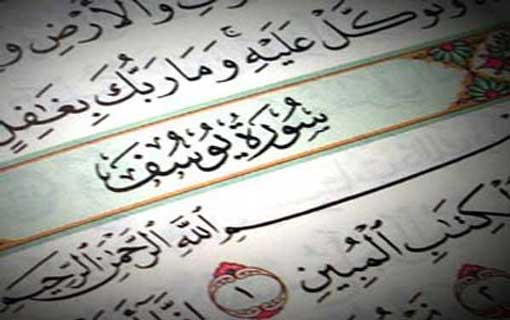 وَٱلْأَرْضِ
وَتَوَكَّلْ عَلَيْهِ ۚ وَمَا رَبُّكَ بِغَٰفِلٍ
سُورَةُ يُوسُفَ
ٱللَّهِ ٱلرَّحْمَٰنِ ٱلرَّحِيمِ
ٱلْكِتَٰبِ ٱلْمُبِينِ ١
٢